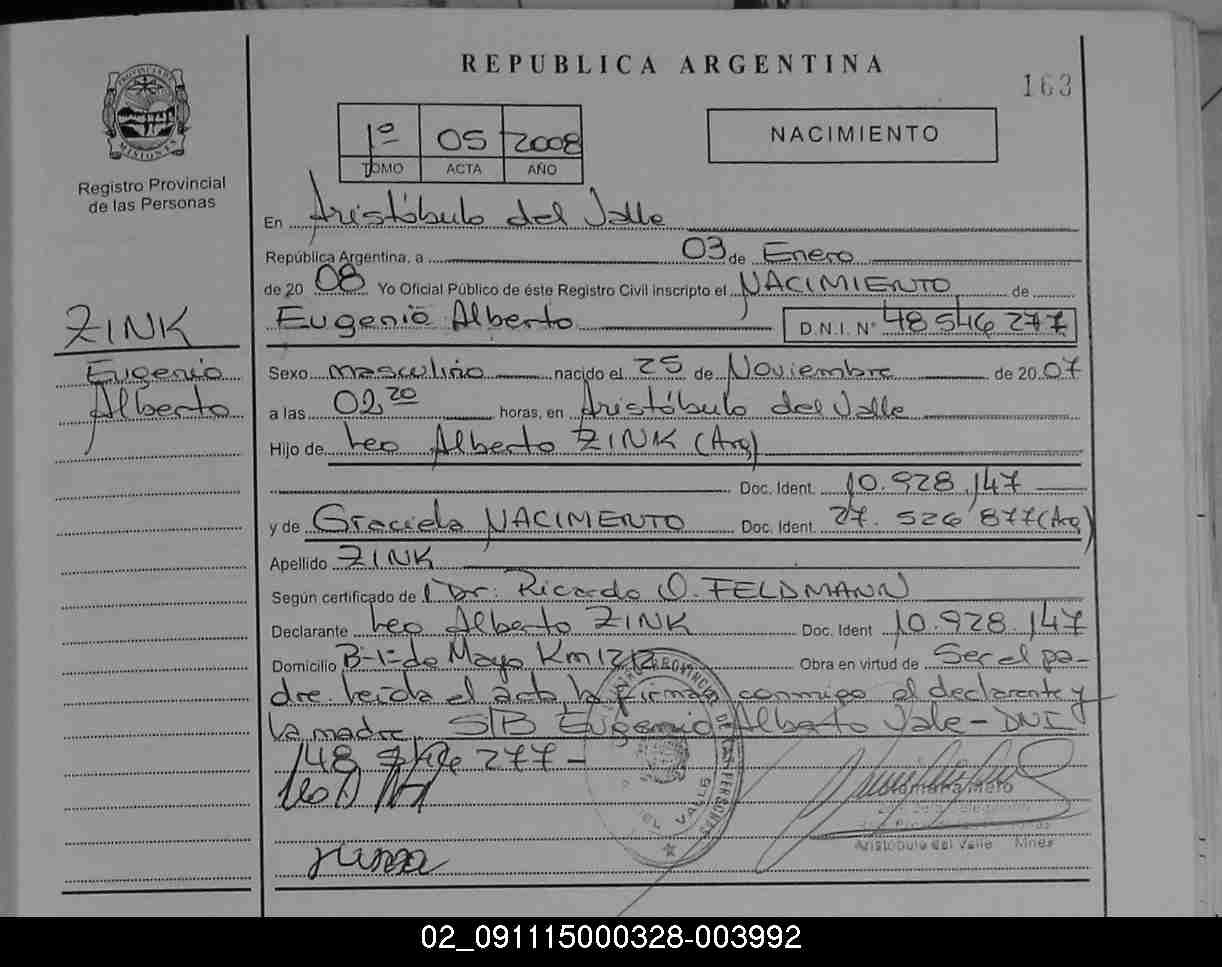 REPUBLICA ARGENTINA
163
PROVINCIA DE MISIONES
Registro Provincial
de las Personas
1º 05 2008
TOMO ACTA AÑO
NACIMIENTO
En Aristóbulo del Valle
República Argentina, a 03 de Enero
de 20 08 Yo Oficial Público de éste Registro Civil inscripto el NACIMIENTO de
Eugenio Alberto D.N.I. Nº 48.546.277
ZINK
Eugenio
Alberto
Sexo masculino nacido el 25 de Noviembre de 20 07
a las 02 20 horas, en Aristóbulo del Valle
Hijo de Leo Alberto ZINK (Arg)
Doc. Ident. 10.928.147
y de Graciela NACIMENTO Doc. Ident. 27.526.877 (Arg)
Apellido ZINK
Según certificado de Dr. Ricardo O. FELDMANN
Declarante Leo Alberto ZINK Doc. Ident 10.928.147
Domicilio B-1º de Mayo Km 1212 Obra en virtud de Ser el pa-
dre. Leída el acta la firman conmigo el declarante y
la madre. S/B Eugenio Alberto Vale - DNI
48 277 -
Aristóbulo del Valle Mnes
02_091115000328-003992